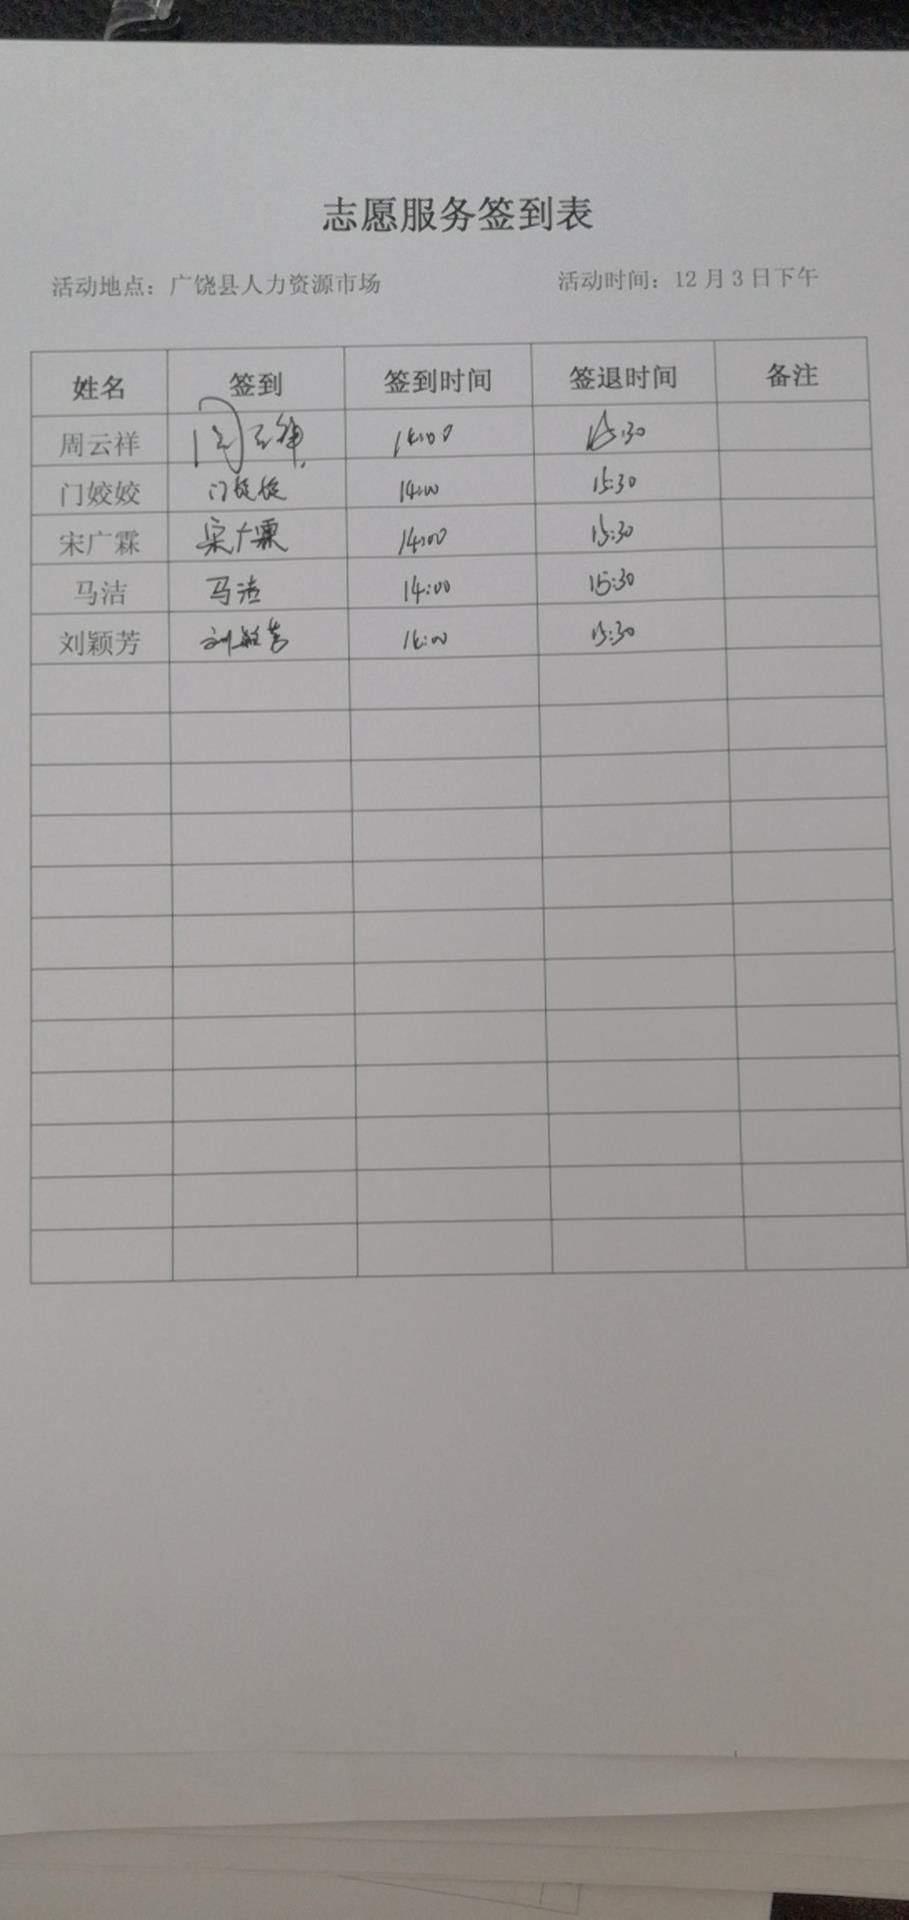 志愿服务签到表
活动地点：广饶县人力资源市场 活动时间：12月3日下午
姓名 签到 签到时间 签退时间 备注
周云祥 周云祥 14:00 15:30
门姣姣 门姣姣 14:00 15:30
宋广霖 宋广霖 14:00 15:30
马洁 马洁 14:00 15:30
刘颖芳 刘颖芳 14:00 15:30